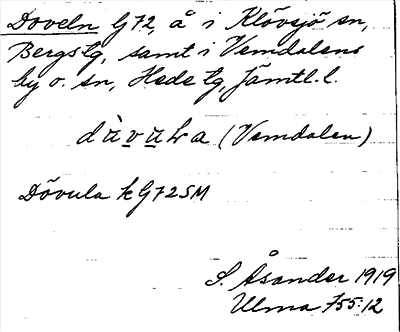 Doveln G72, å i Klövsjö sn,
Bergs tg, samt i Vemdalens
by o. sn, Hede tg, Jämtl. l.
(Vemdalen)
Dövula k G72SM
S. Åsander 1919
Ulma 755:12